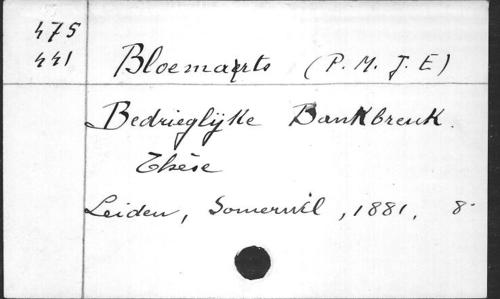 475
441
Bloemarts (P. M. J. E)
Bedrieglijke Bankbreuk.
Thèse
Leiden, Somerwil, 1881, 8°